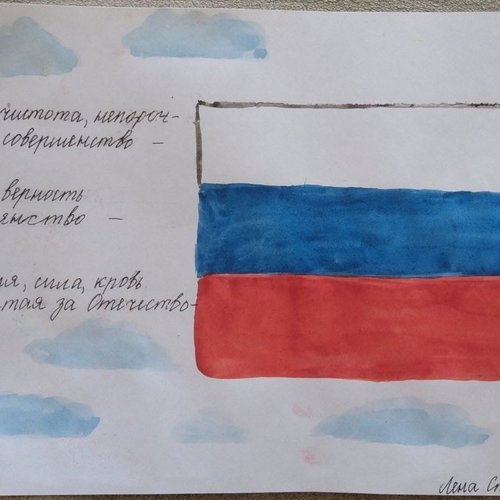 чистота, непороч-
совершенство –
верность
янство –
ия, сила, кровь
тая за Отечество-
Лена